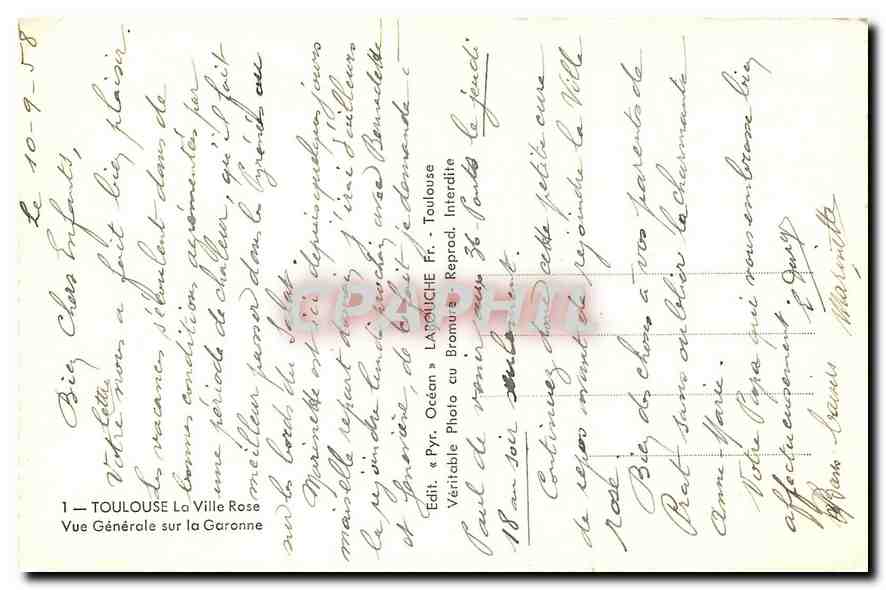 Le 10-9-58
Bien Chers Enfants,
Votre lettre nous a fait bien plaisir.
Les vacances s'écoulent dans de
bonnes conditions agrémentées par
une période de chaleur, qu'il fait
meilleur passer dans les Pyrénées ou
sur les bords du Salat.
Marinette est ici depuis quelques jours
mais elle repart demain, j'irai d'ailleurs
la rejoindre lundi prochain avec Bernadette
et Geneviève, de ce fait je demande à
Paul de venir au 36-Ponts le jeudi
18 au soir seulement.
Continuez donc cette petite cure
de repos avant de rejoindre la Ville
rose.
Bien des choses à vos parents de
Prat sans oublier la charmante
Anne-Marie.
Votre Papa qui vous embrasse bien
affectueusement
Marinette
Edit. « Pyr. Océan » LABOUCHE Fr. - Toulouse
Véritable Photo au Bromure Reprod. Interdite
1 — TOULOUSE La Ville Rose
Vue Générale sur la Garonne
CPAPHIL